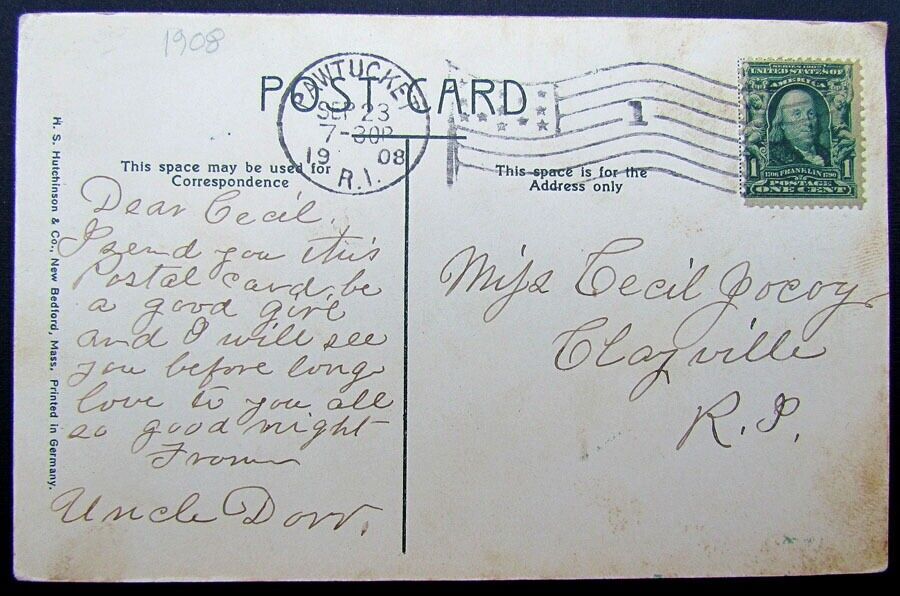 1908
POST CARD
PAWTUCKET
SEP 23
7-30P
19 08
R.I.
1
SERIES 1902
UNITED STATES OF
AMERICA
1 1
1706 FRANKLIN 1790
POSTAGE
ONE CENT
This space may be used for
Correspondence
This space is for the
Address only
H. S. Hutchinson & Co., New Bedford, Mass. Printed in Germany.
Dear Cecil.
I send you this
Postal card be
a good girl
and I will see
you before long
love to you all
so good night
From
Uncle Dorr.
Miss Cecil Jocoy
Clayville
R.I.